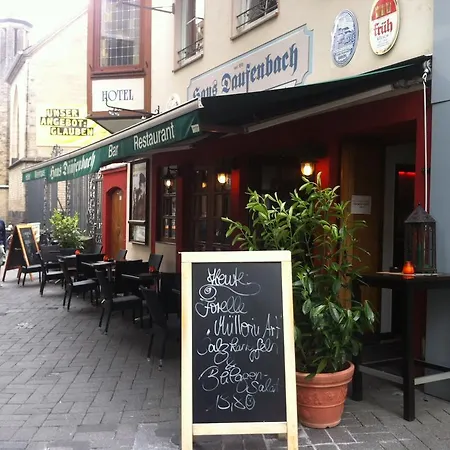 HOTEL
UNSER
ANGEBOT:
GLAUBEN
Haus Daufenbach
früh
Bar Restaurant
Haus Daufenbach
Heute
Forelle
Müllerin Art
Salzkartoffeln
&
Beilagen-
Salat
13,50